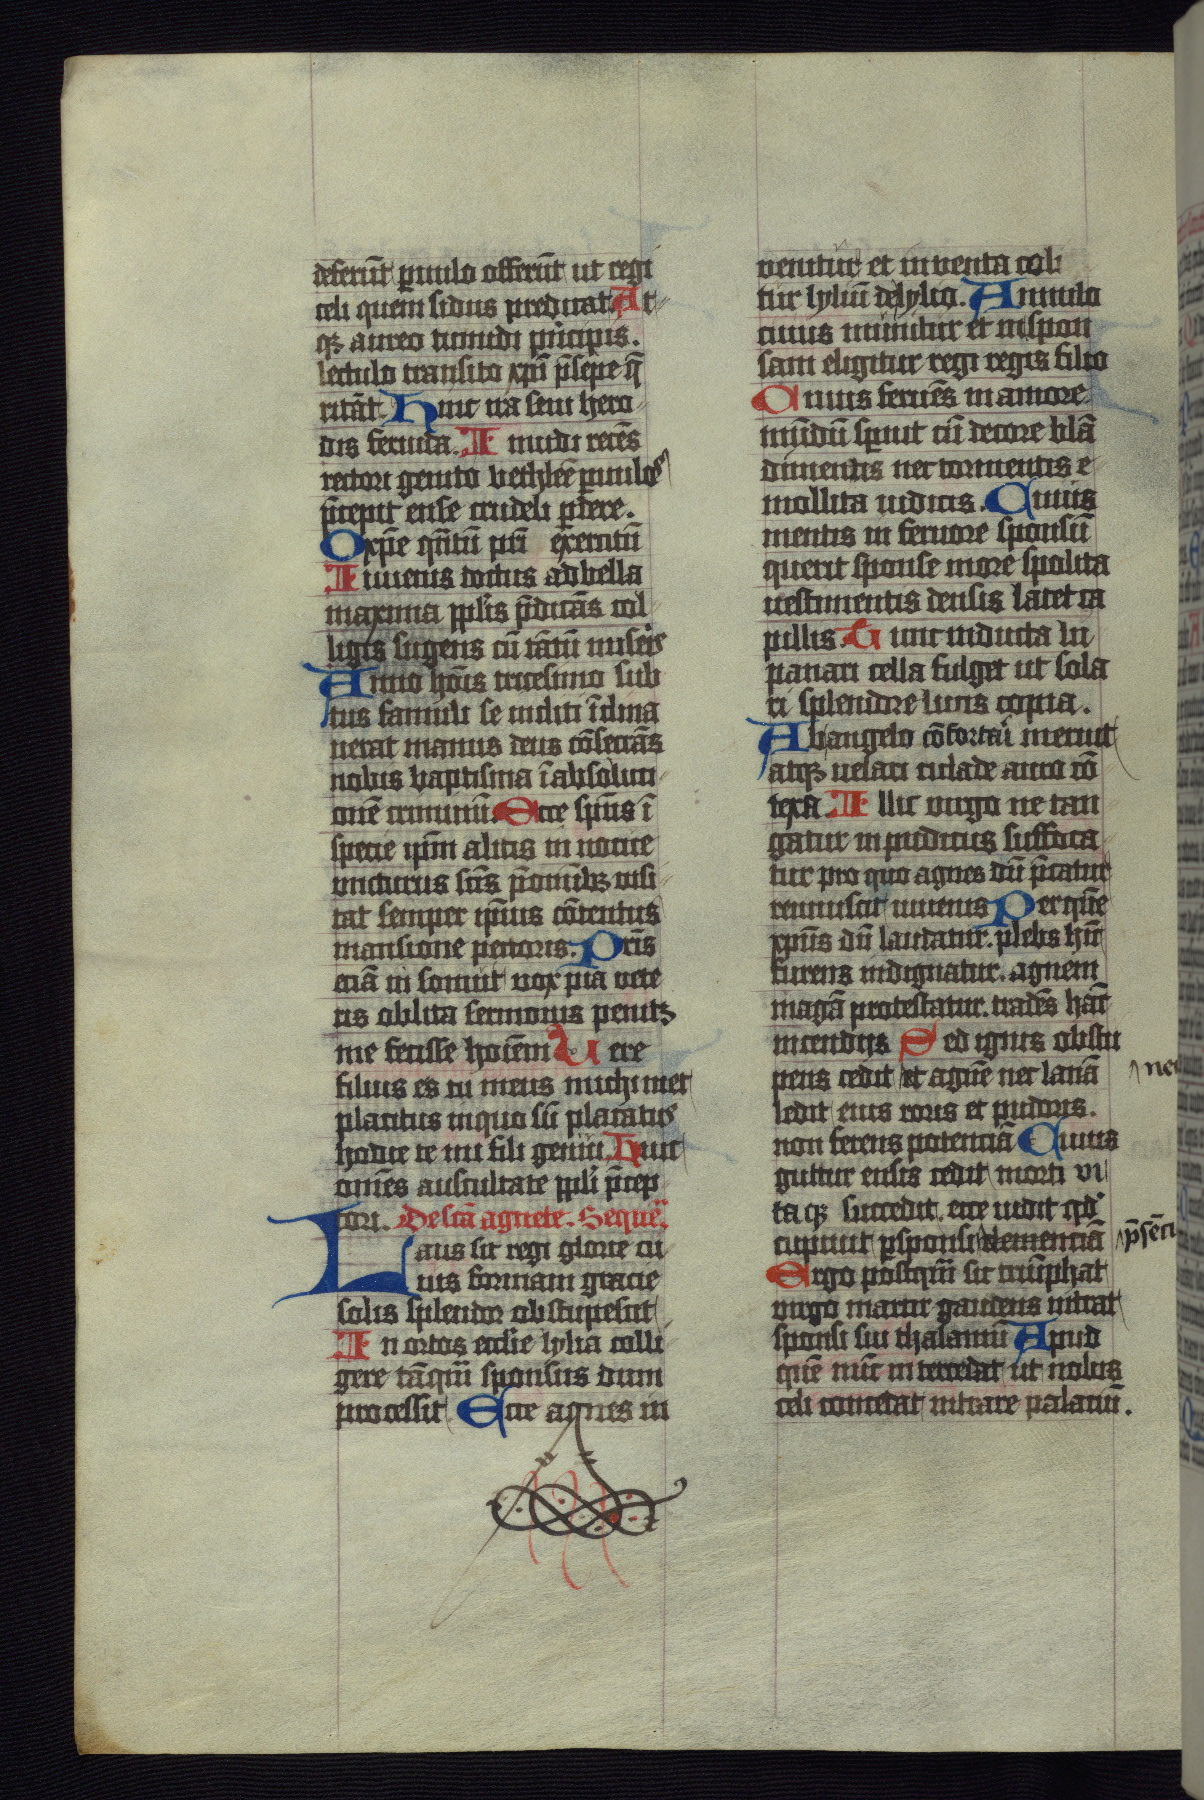 deferūt puulo offerūt ut regi
celi quem sidus predicat. At
qꝫ aureo tumidi pͥncipis.
lectulo transito xpm̄ p̄sepe q̄
ritāt. Huic ira seui hero
dis feruida. I muidi recēs
rectori genito bethleē puulos
p̄cepit ense crudeli pdere.
O xpe qͣntū pri exercitū
Iuuenis doctus ad bella
maxima pplis p̄dicās col
ligis sugens cū tātū miseris
Anno hōis tricesimo sub
tus famuli se incliti īclina
uerat manus deus cōsecrās
nobis baptisma ī absoluti
onē criminū. Ecce spūs ī
specie ipm alitis in nocue
uncturus scīs p̄ omībꝫ uisi
tat semper ipius cōtentus
mansione pectoris. Prīs
eciā in sonuit vox pia vete
ris oblita sermonis penitꝫ
me fecisse hoīem Uere
filius es tu meus michimet
placitus in quo sū placatus
hodie te mi fili genui. Hunc
omēs auscultate ppli p̄cep
tori. De scā agnete. Sequē.
Laus sit regi glorie cu
ius formam gracie
solis splendor obstupescit
In ortos ecclie lylia colli
gere tāqͣm sponsus dum
processit. Ecce agnes in
venitur et inventa coli
tur lyliū de lylio. Annulo
cuius munitur et in spon
sam eligitur regi regis filio
Cuius feruēs in amore
mūdū spuit cū decore blā
dimentis nec tormentis e
mollita iudicis. Cuius
mentis in feruore sponsū
querit sponse more spolita
uestimentis densis latet ca
pillis. Hunc inducta lu
panari cella fulget ut sola
ri splendore lucis copia.
Ab angelo cōfortari meruit
atqꝫ uelari ciclade auro cō
texa. Illic virgo ne tan
gatur in pudicus suffoca
tur pro quo agnes dū p̄catur
reuiuiscit iuuenis Per quē
xpūs dū laudatur. plebs hīc
furens indignatur. agnem
magā protestatur. tradēs hāc
incendijs Sed ignis obstu
pens cedit et agnē nec lanā
ledit eius roris et pudoris.
non ferens potenciā Cuius
guttur ensis cedit morti vi
ta qꝫ succedit. ecce uidit qd
cupiuit p sponsi clemenciā
Ergo postqͣm sic triūphat
virgo martir gaudens intrat
sponsi sui thalamū Apud
quē nūc intercedat ut nobis
celi concedat intrare palaciū.
nec
p̄sēci